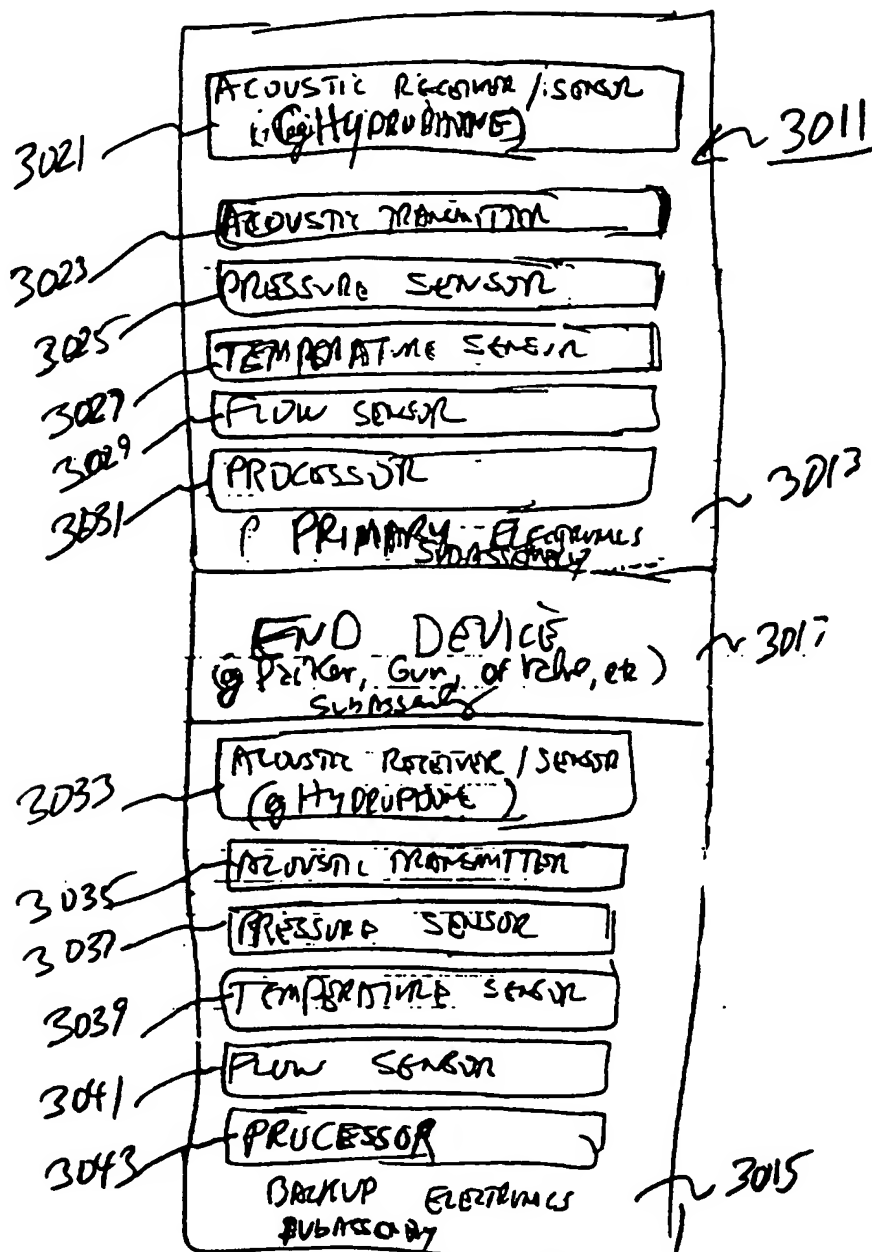 ACOUSTIC RECEIVER / SENSOR
(eg HYDROPHONE)
3021
3011
ACOUSTIC TRANSMITTER
3023
PRESSURE SENSOR
3025
TEMPERATURE SENSOR
3027
FLOW SENSOR
3029
PROCESSOR
3031
3013
PRIMARY ELECTRONICS
SUBASSEMBLY
END DEVICE
3017
(eg Packer, Gun, or Valve, etc)
SubAssembly
ACOUSTIC RECEIVER / SENSOR
3033
(eg HYDROPHONE)
ACOUSTIC TRANSMITTER
3035
PRESSURE SENSOR
3037
TEMPERATURE SENSOR
3039
FLOW SENSOR
3041
PROCESSOR
3043
BACKUP ELECTRONICS
3015
SUBASSEMBLY